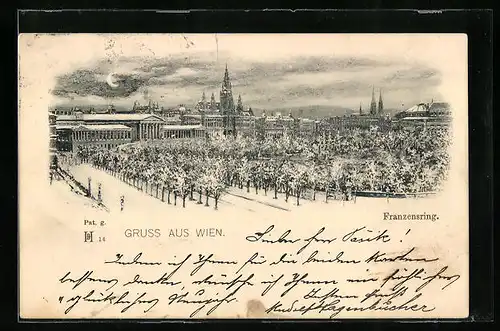 Franzensring.
Pat. g.
14
GRUSS AUS WIEN.
Lieber Herr !
Indem ich Ihnen für die beiden Karten
bestens danke, wünsche ich Ihnen ein fröhliches
glückliches Neujahr
Rudolf